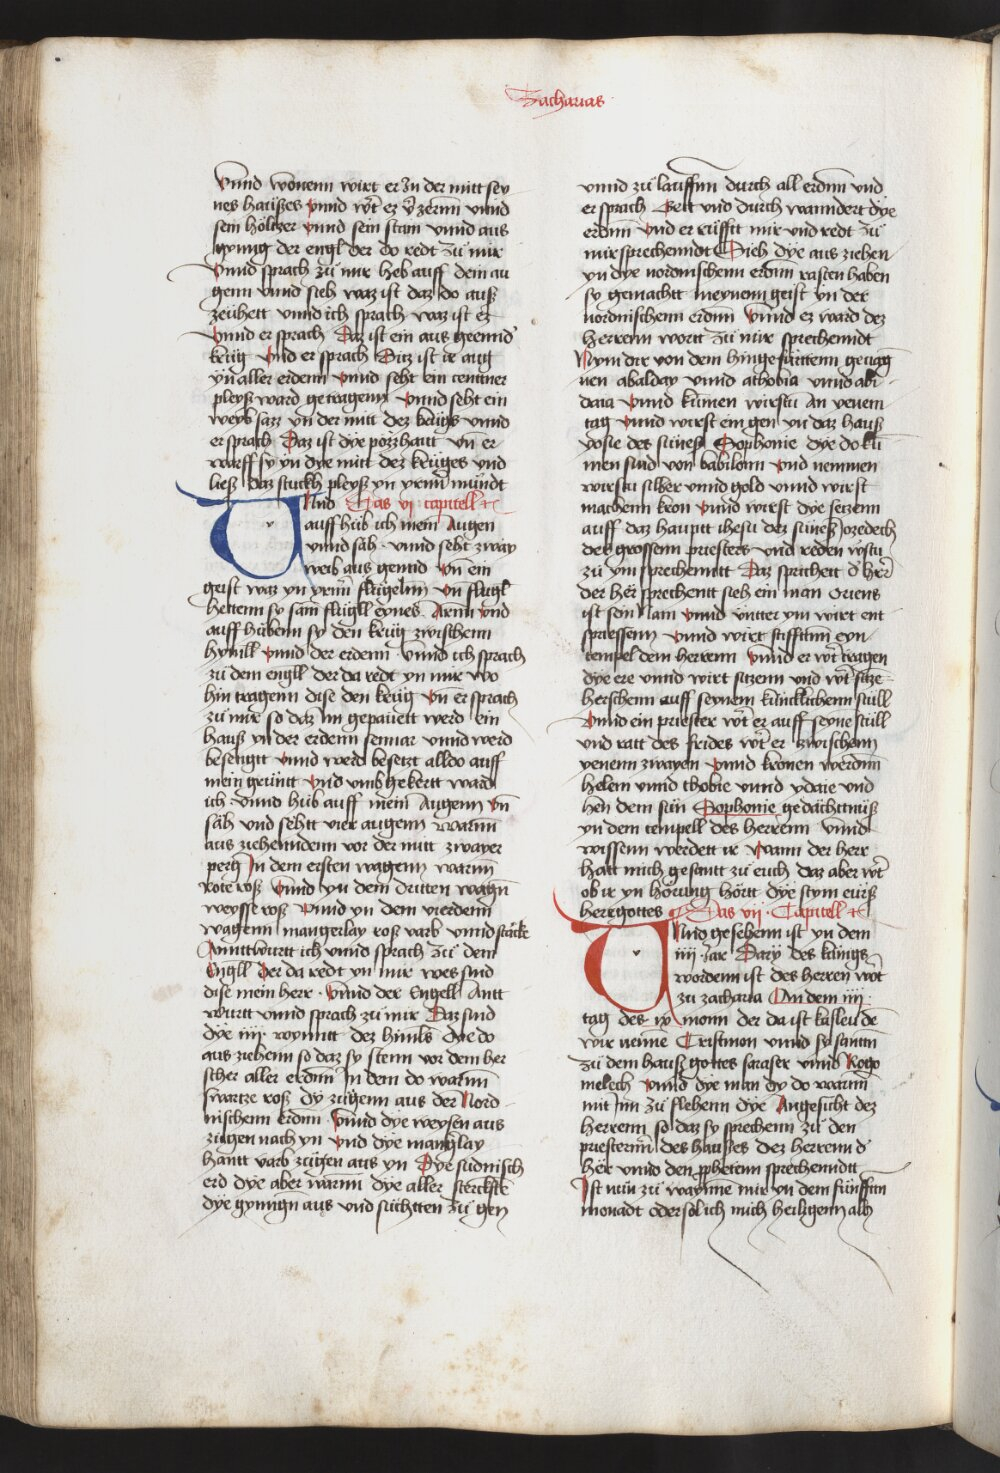 Zacharias
Vnnd wonenn wirt er In der mitt sey
nes haußes vnnd wt ez v̈zernn vnnd
sein höltzer vnnd sein stain vnnd aus
gynng der engl der do redt zu mir
Vnnd sprach zu mir heb auff dein au
genn vnnd sieh waz ist daz do auß
zeühett vnnd ich sprach waz ist ez
Vnnd er sprach Daz ist ein aus geennd
krüg Vnd er sprach Ditz ist ir aug
yn aller erdenn vnnd seht ein centtner
pleyß ward getragenn Vnnd seht ein
weyb sazz yn der mitt dez krügs vnnd
er sprach Daz ist dye pözzhaitt Vn̄ er
warff sy yn dye mitt dez krüges vnd
ließ daz stuckh pleyß yn yrnn mündt
Vnd Das vj capitell etc
auff hüb ich mein Augen
vnnd säh vnnd seht zway
weib aus geend Vn̄ ein
geist waz yn yrnn flügelnn Vn̄ flügl
hettenn sy sam flügll eynes Arnn vnd
auff häbenn sy den krüg zwischenn
hymll vnnd der erdenn vnnd ich sprach
zu dem engll der da redt yn mir wo
hin tragenn dise den krüg Vn̄ er sprach
zu mir so daz Im gepauett werd ein
hauß yn der erdenn sennar vnnd werd
bestengt vnnd werd besetzt alldo auff
mein grüntt Vnd vmb gekertt ward
ich vnnd hüb auff mein Augenn Vn̄
säh vnd sehtt vier augenn warnn
aus ziehenndenn vor der mitt zwayer
perg In dem ersten wagenn warnn
rote roß Vnnd yn dem dritten wagn̄
weysse roß Vnnd yn dem vierdenn
wagenn mangerlay roß varb vnnd stärke
Anntwurtt ich vnnd sprach zu dem
Engll Der da redt yn mir wes sind
dise mein herr Vnnd der Engell Antt
wurtt vnnd sprach zu mir Daz sind
dye iiij wynntt dez himls dye do
aus ziehenn so daz sy stenn vor dem her
scher aller erdnn In dem do warnn
swartze roß dy zugenn aus der Nord
nischenn erdnn Vnnd dye weysen aus
zugen nach yn Vnd dye manglay
hantt varb zügen aus yn Dye sudnisch
erd dye aber warnn dye aller sterckste
dye gynngn̄ aus vnd suchtten zu gen
vnnd zu lauffnn durch all erdnn vnd
er sprach Gett vnd durch wanndert dye
erdnn Vnd er rüfftt mir vnd redt zu
mir sprechenndt Sieh dye aus ziehen
yn dye nordnischenn erdnn rasten haben
sy gemachtt meynenn geist yn der
nordnischenn erdnn Vnnd ez ward dez
herrenn wortt zu mir sprechenndt
Nym dir von dem hingefürttenn gefāg
nen abalday vnnd athobia vnnd abi
daia Vnnd kumen wirstu An yenem
tag Vnnd wirst ein gen yn daz hauß
yosie des sünes Sophonie dye do ku
men sind von babilonn Vnd nemmen
wirstu silber vnnd gold vnnd wirst
machenn kron Vnnd wirst dye setzenn
auff daz hauptt ihesu dez sunes Jozedech
des grossenn priesters Vnd reden wstu
zu ym sprechenntt Daz sprichett d her
der her sprechentt sieh ein man oriens
ist sein nam Vnnd vntter ym wirt ent
spriessenn Vnnd wirt stifftnn eyn
tempel dem herrenn Vnnd er wt tragen
dye ere vnnd wirt sitzenn vnd wt sitze
herschenn auff seynem küncklichenn stüll
Vnnd ein priester wt er auff seyne stüll
vnd ratt des frides wt er zwischenn
yenenn zwayen Vnnd kronen werdnn
helem vnnd thobie vnnd ydaie vnd
hen dem sun Sophonie gedächtnuß
yn dem tempell des herrenn Vnnd
wissenn werdett ir Wann der herr
hatt mich gesantt zu euch daz aber wt
ob ir yn hörung hörtt dye stym eurß
herrgottes Das vij Capitell etc
Vnd geschenn ist yn dem
iiij Jar Dary des künigs
wordenn ist des herren wort
zu zacharia An dem iiij
tag des ix monn der da ist kasleu de
wir nenne Cristmon vnnd sy santtn
zu dem hauß gottes saraser vnnd Rogo
melech Vnnd dye man dy do warnn
mit Im zu flehenn dye Angesicht dez
herrenn so daz sy sprechenn zu den
priesternn des haußes dez herrenn d
her vnnd den pphetenn sprechenndtt
Ist nun zu waynne mir yn dem fünfftn
monadt oder sol ich mich heiligenn als